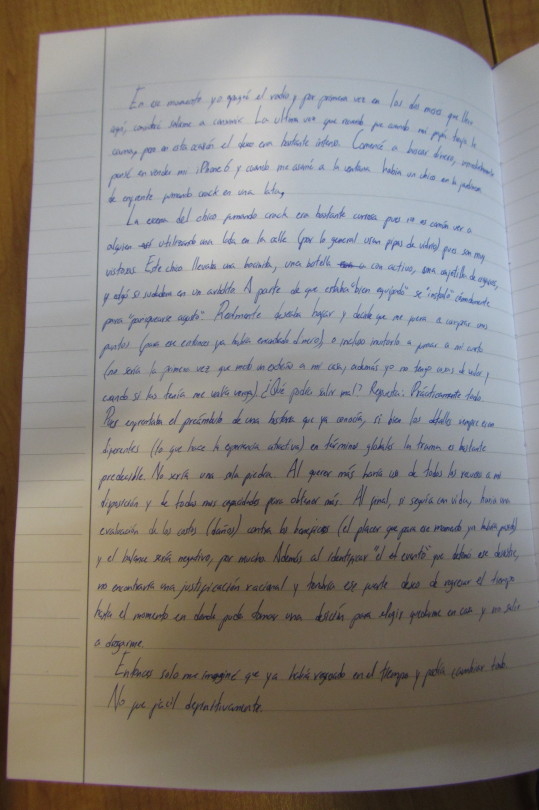 En ese momento yo apagué el radio y por primera vez en los dos meses que llevo
aquí, consideré salirme a caminar. La ultima vez que recuerdo fue cuando mi papá trajo la
cama, pero en esta ocasión el deseo era bastante intenso. Comencé a buscar dinero,
pensé en vender mi iPhone 6 y cuando me asomé a la ventana había un chico en la
de enfrente fumando crack en una lata.
La escena del chico fumando crack era bastante curiosa pues no es común ver a
alguien utilizando una lata en la calle (por lo general usan pipas de vidrio) pues son muy
vistosas. Este chico llevaba una bocinita, una botella con activo, una cajetilla de cigarros,
y algo si sudaba en un A parte de que estaba "bien equipado" se "instaló" cómodamente
para Realmente deseaba bajar y decirle que me fuera a comprar unos
puntos (para ese entonces ya había encontrado dinero), o incluso invitarlo a pasar a mi cuarto
(no sería la primera vez que meto un extraño a mi casa, además yo no tengo cosas de valor y
cuando si las tenía me valía verga) ¿Qué podía salir mal? Respuesta: Prácticamente todo.
Pues enfrentaba el preámbulo de una historia que ya conocía, si bien los detalles siempre son
diferentes (lo que hace la experiencia atractiva) en términos globales la trama es bastante
predecible. No sería una sola piedra. Al querer más haría uso de todos los recursos a mi
disposición y de todas mis capacidades para obtener más. Al final, si seguía con vida, haría una
evaluación de los costos (daños) contra los beneficios (el placer que para ese momento ya habría pasado)
y el balance sería negativo, por mucho. Además al identificar "el evento" que detonó ese desastre,
no encontraría una justificación racional y tendría ese fuerte deseo de regresar el tiempo
hasta el momento en donde pude tomar una desición para elegir quedarme en casa y no salir
a drogarme.
Entonces solo me imaginé que ya había regresado en el tiempo y podía cambiar todo.
No fue fácil definitivamente.